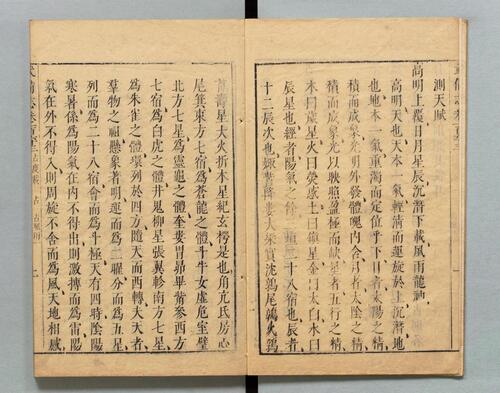 測天賦
高明上覆日月星辰沉潛下載風雨龍神
高明天也天本一氣輕清而運旋於上沉潛地
也地本一氣重濁而定位乎下日者太陽之精
積而成象光明外發體魄內含月者太陰之精
積而成象光以映照盈極而缺星者五行之精
木曰歲星火曰熒惑土曰鎮星金曰太白水曰
辰星也經者陽氣之餘 二十八宿也辰者
十二辰次也娵訾降婁大梁實沈鶉尾鶉火鶉
首壽星大火折木星紀玄枵是也角亢氐房心
尾箕東方七宿為蒼龍之體斗牛女虛危室壁
北方七星為靈龜之體奎婁胃昴畢觜參西方
七宿為白虎之體井鬼柳星張翼軫南方七星
為朱雀之體環列於四方隨天而西轉夫天者
羣物之祖懸象者明運而為二曜分而為五星
列而為二十八宿會而為斗極天有四時陰陽
寒暑係為陽氣在內不得出則激搏而為雷陽
氣在外不得入則周旋不舍而為風天地相感